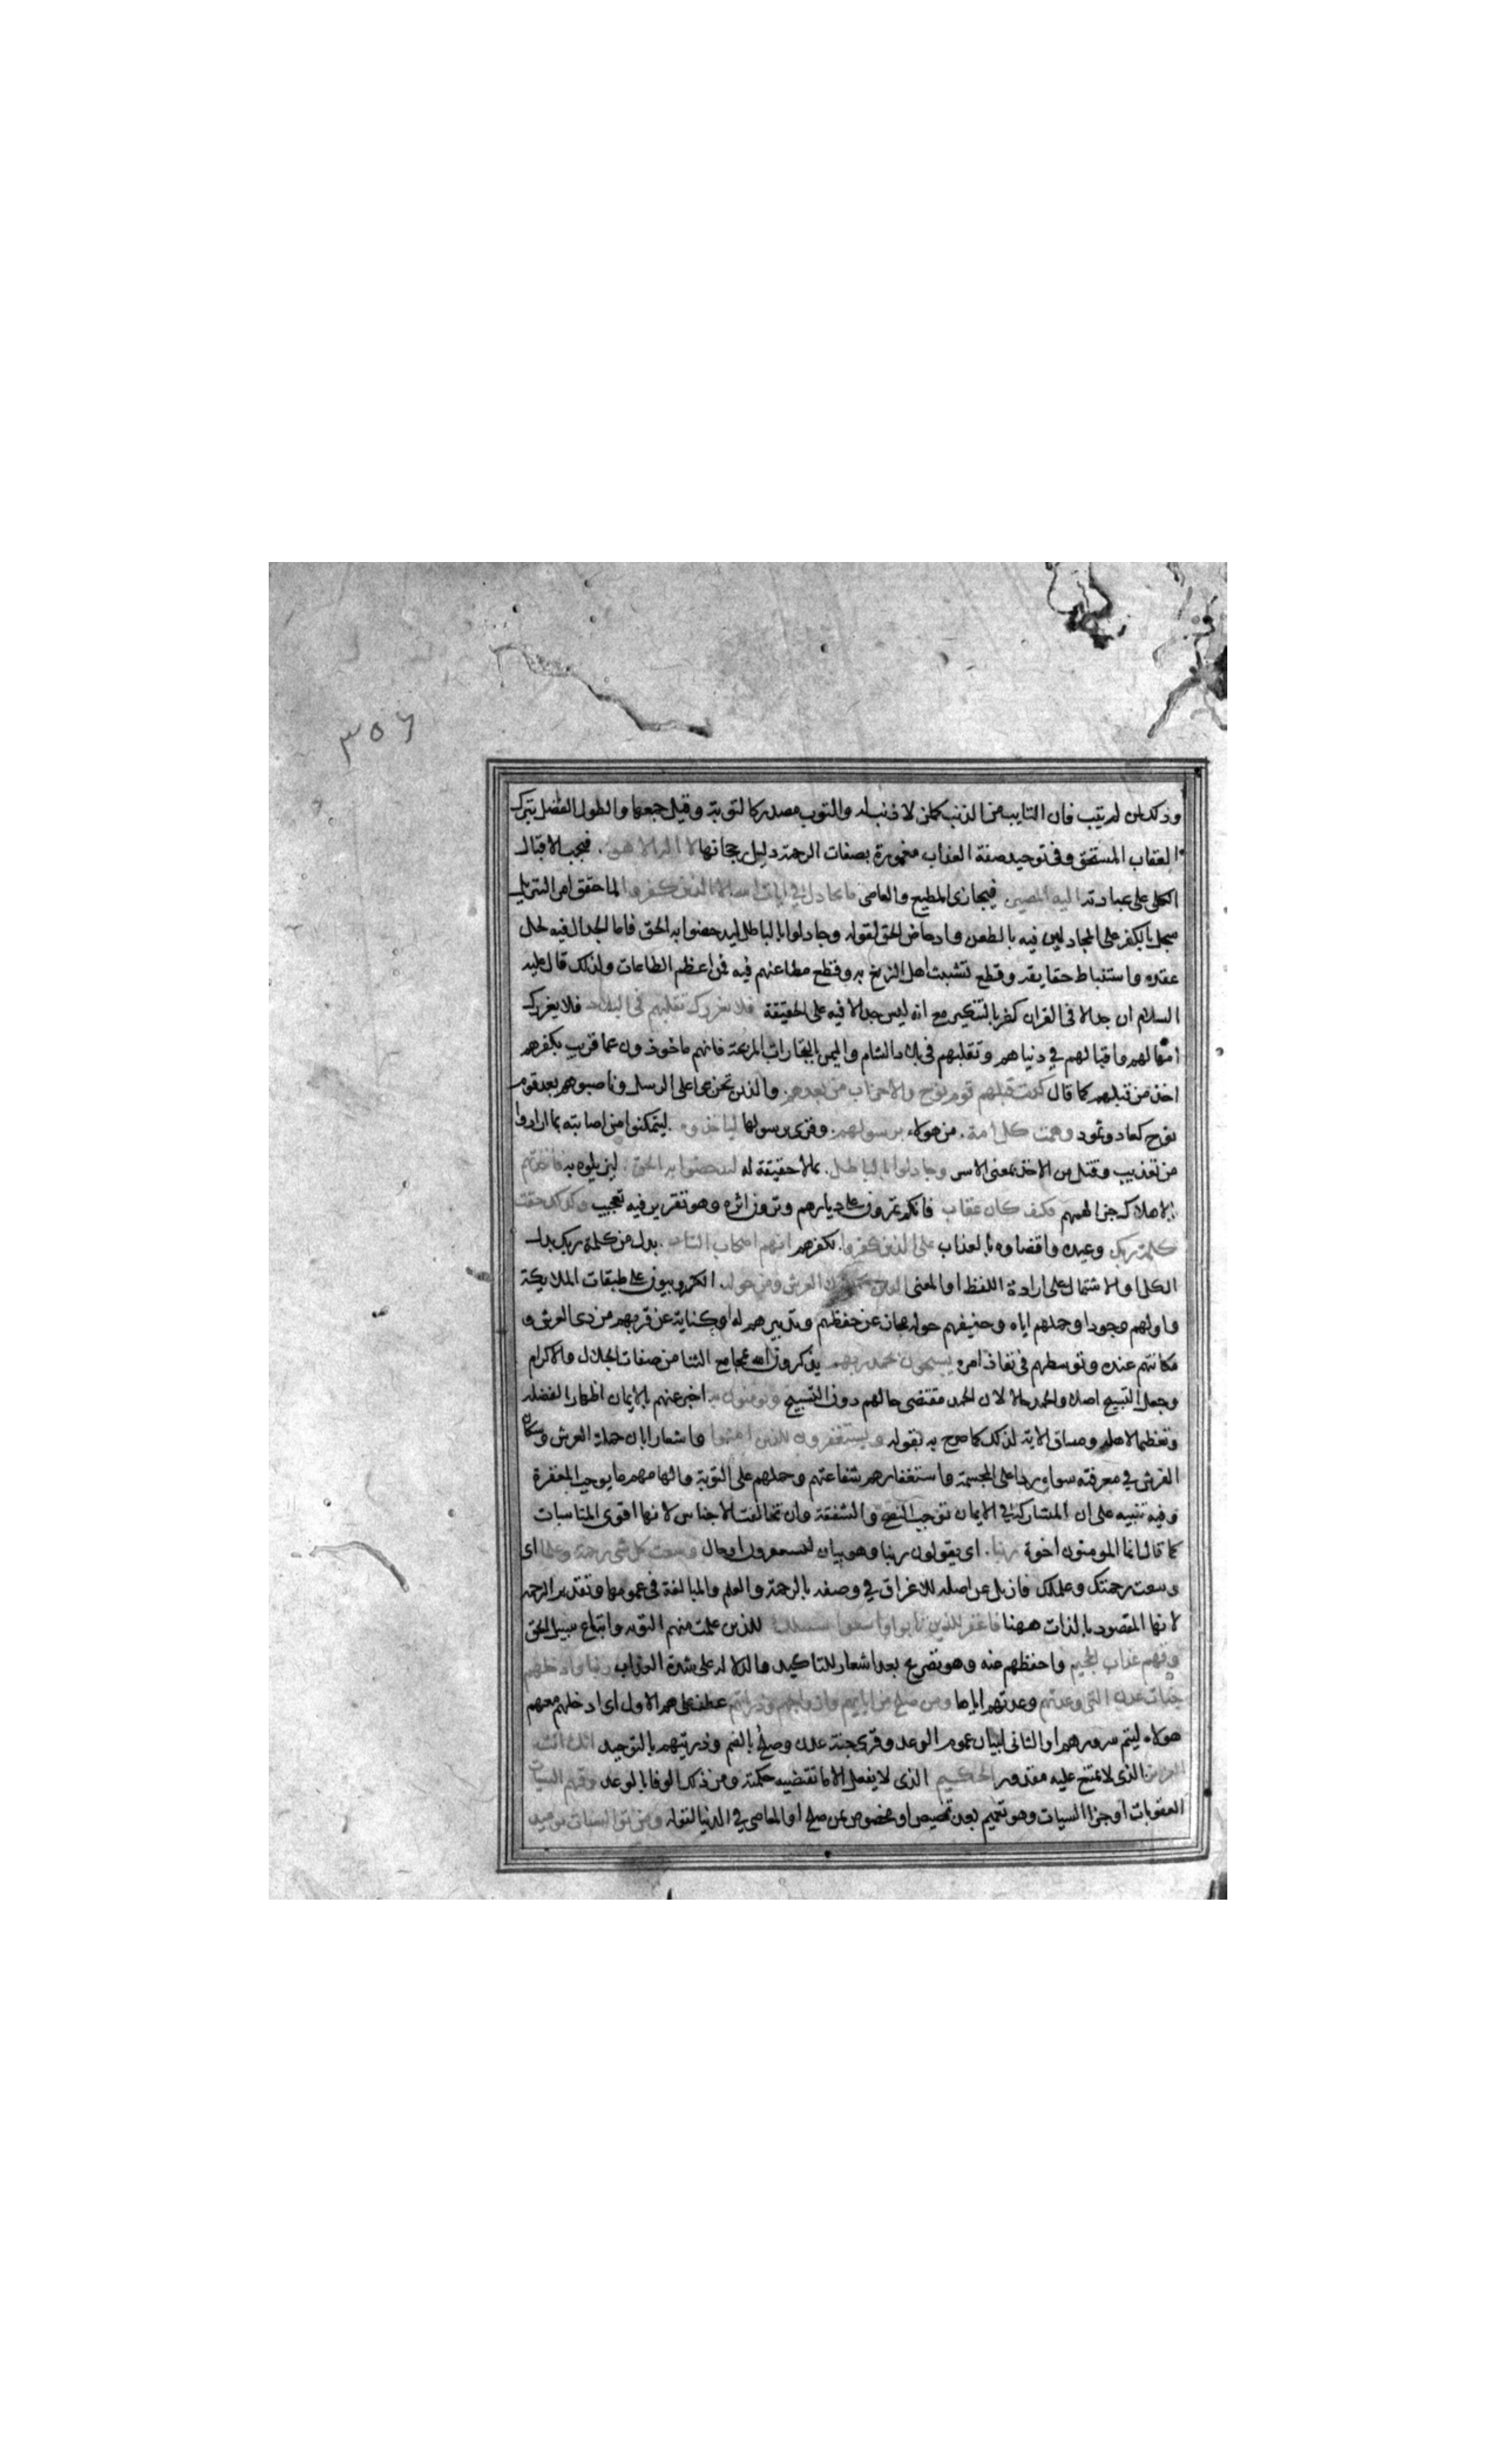 ٣٥٦
وذلك لمن لم يتب فان التايب من الذنب كمن لا ذنب له والتوب مصدر كالتوبة وقيل جمعها والطول الفضل بترك
العقاب المستحق وفي توحيد صفة العذاب مغمورة بصفات الرحمة دليل رجحانها لا اله الا هو فيجب الاقبال
الكلي على عبادته اليه المصير فيجازى المطيع والعاصى ما يجادل في ايات الله الا الذين كفروا لما حقق امر التنزيل
سجل بالكفر على المجادلين فيه بالطعن وادحاض الحق لقوله وجادلوا بالباطل ليدحضوا به الحق فاما الجدال فيه لحل
عقده واستنباط حقايقه وقطع تشبث اهل الزيغ به وقطع مطاعنهم فيه فمن اعظم الطاعات ولذلك قال عليه
السلام ان جدالا في القران كفر بالتنكير مع انه ليس جدالا فيه على الحقيقة فلا يغررك تقلبهم في البلاد فلا يغررك
امهالهم واقبالهم في دنياهم وتقلبهم في بلاد الشام واليمن بالتجارات المربحة فانهم ماخوذون عما قريب بكفرهم
اخذ من قبلهم كما قال كذبت قبلهم قوم نوح والاحزاب من بعدهم والذين تحزبوا على الرسل وناصبوهم بعد قوم
نوح كعاد وثمود وهمت كل امة من هولاء برسولهم وقرى برسولها لياخذوه ليتمكنوا من اصابته بما ارادوا
من تعذيب وقتل من الاخذ بمعنى الاسر وجادلوا بالباطل بما لا حقيقة له ليدحضوا به الحق ليزيلوه به فاخذتهم
بالاهلاك جزا لهمهم فكيف كان عقاب فانكم تمرون على ديارهم وترون اثره وهو تقرير فيه تعجيب وكذلك حقت
كلمة ربك وعيده واقضاوه بالعذاب على الذين كفروا بكفرهم انهم اصحاب النار بدل من كلمة ربك بدل
الكل او الاشتمال على ارادة اللفظ او المعنى الذين يحملون العرش ومن حوله الكروبيون على طبقات الملايكة
واولهم وجودا وحملهم اياه وحفيفهم حوله مجاز عن حفظهم وتدبيرهم له او كناية عن قربهم من ذى العرش و
مكانتهم عنده وتوسطهم في نفاذ امره يسبحون بحمد ربهم يذكرون الله بمجامع الثنا من صفات الجلال والاكرام
وجعل التسبيح اصلا والحمد حالا لان الحمد مقتضى حالهم دون التسبيح ويومنون به اخبر عنهم بالايمان اظهارا لفضله
وتعظيما لاهله ومساق الاية لذلك كما صرح به بقوله ويستغفرون للذين امنوا واشعارا بان حملة العرش وسكان
الفرش في معرفته سواء ردا على المجسمة واستغفارهم شفاعتهم وحملهم على التوبة والهامهم ما يوجب المغفرة
وفيه تنبيه على ان المشاركة في الايمان توجب النصح والشفقة وان تخالفت الاجناس لانها اقوى المناسبات
كما قال انما المومنون اخوة ربنا اى يقولون ربنا وهو بيان ليستغفرون او حال وسعت كل شى رحمة وعلما اى
وسعت رحمتك وعلمك فازيل عن اصله للاغراق في وصفه بالرحمة والعلم والمبالغة في عمومها وتقديم الرحمة
لانها المقصود بالذات ههنا فاغفر للذين تابوا واتبعوا سبيلك للذين علمت منهم التوبه واتباع سبيل الحق
وقهم عذاب الجحيم واحفظهم عنه وهو تصريح بعد اشعار للتاكيد والدلالة على شدة العذاب ربنا وادخلهم
جنات عدن التي وعدتهم وعدتهم اياها ومن صلح من ابايهم وازواجهم وذرياتهم عطف على هم الاول اى ادخلهم معهم
هولاء ليتم سرورهم او الثاني لبيان عموم الوعد وقرى جنة عدن وصلح بالضم وذريتهم بالتوحيد انك انت
العزيز الذى لا يمتنع عليه مقدور الحكيم الذى لا يفعل الا ما تقتضيه حكمته ومن ذلك الوفا بالوعد وقهم السيات
العقوبات او جزا السيات وهو تعميم بعد تخصيص او مخصوص بمن صلح او المعاصى في الدنيا لقوله ومن تق السيات يوميذ